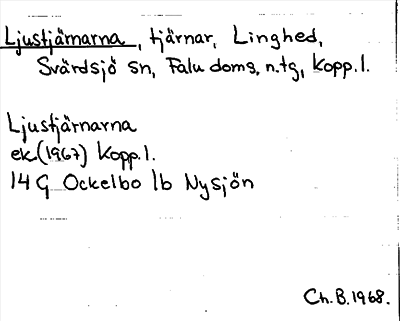 Ljustjärnarna, tjärnar, Linghed,
Svärdsjö sn, Falu doms. n.tg, Kopp.l.
Ljustjärnarna
ek.(1967) Kopp.l.
14 G Ockelbo 1b Nysjön
Ch.B.1968.